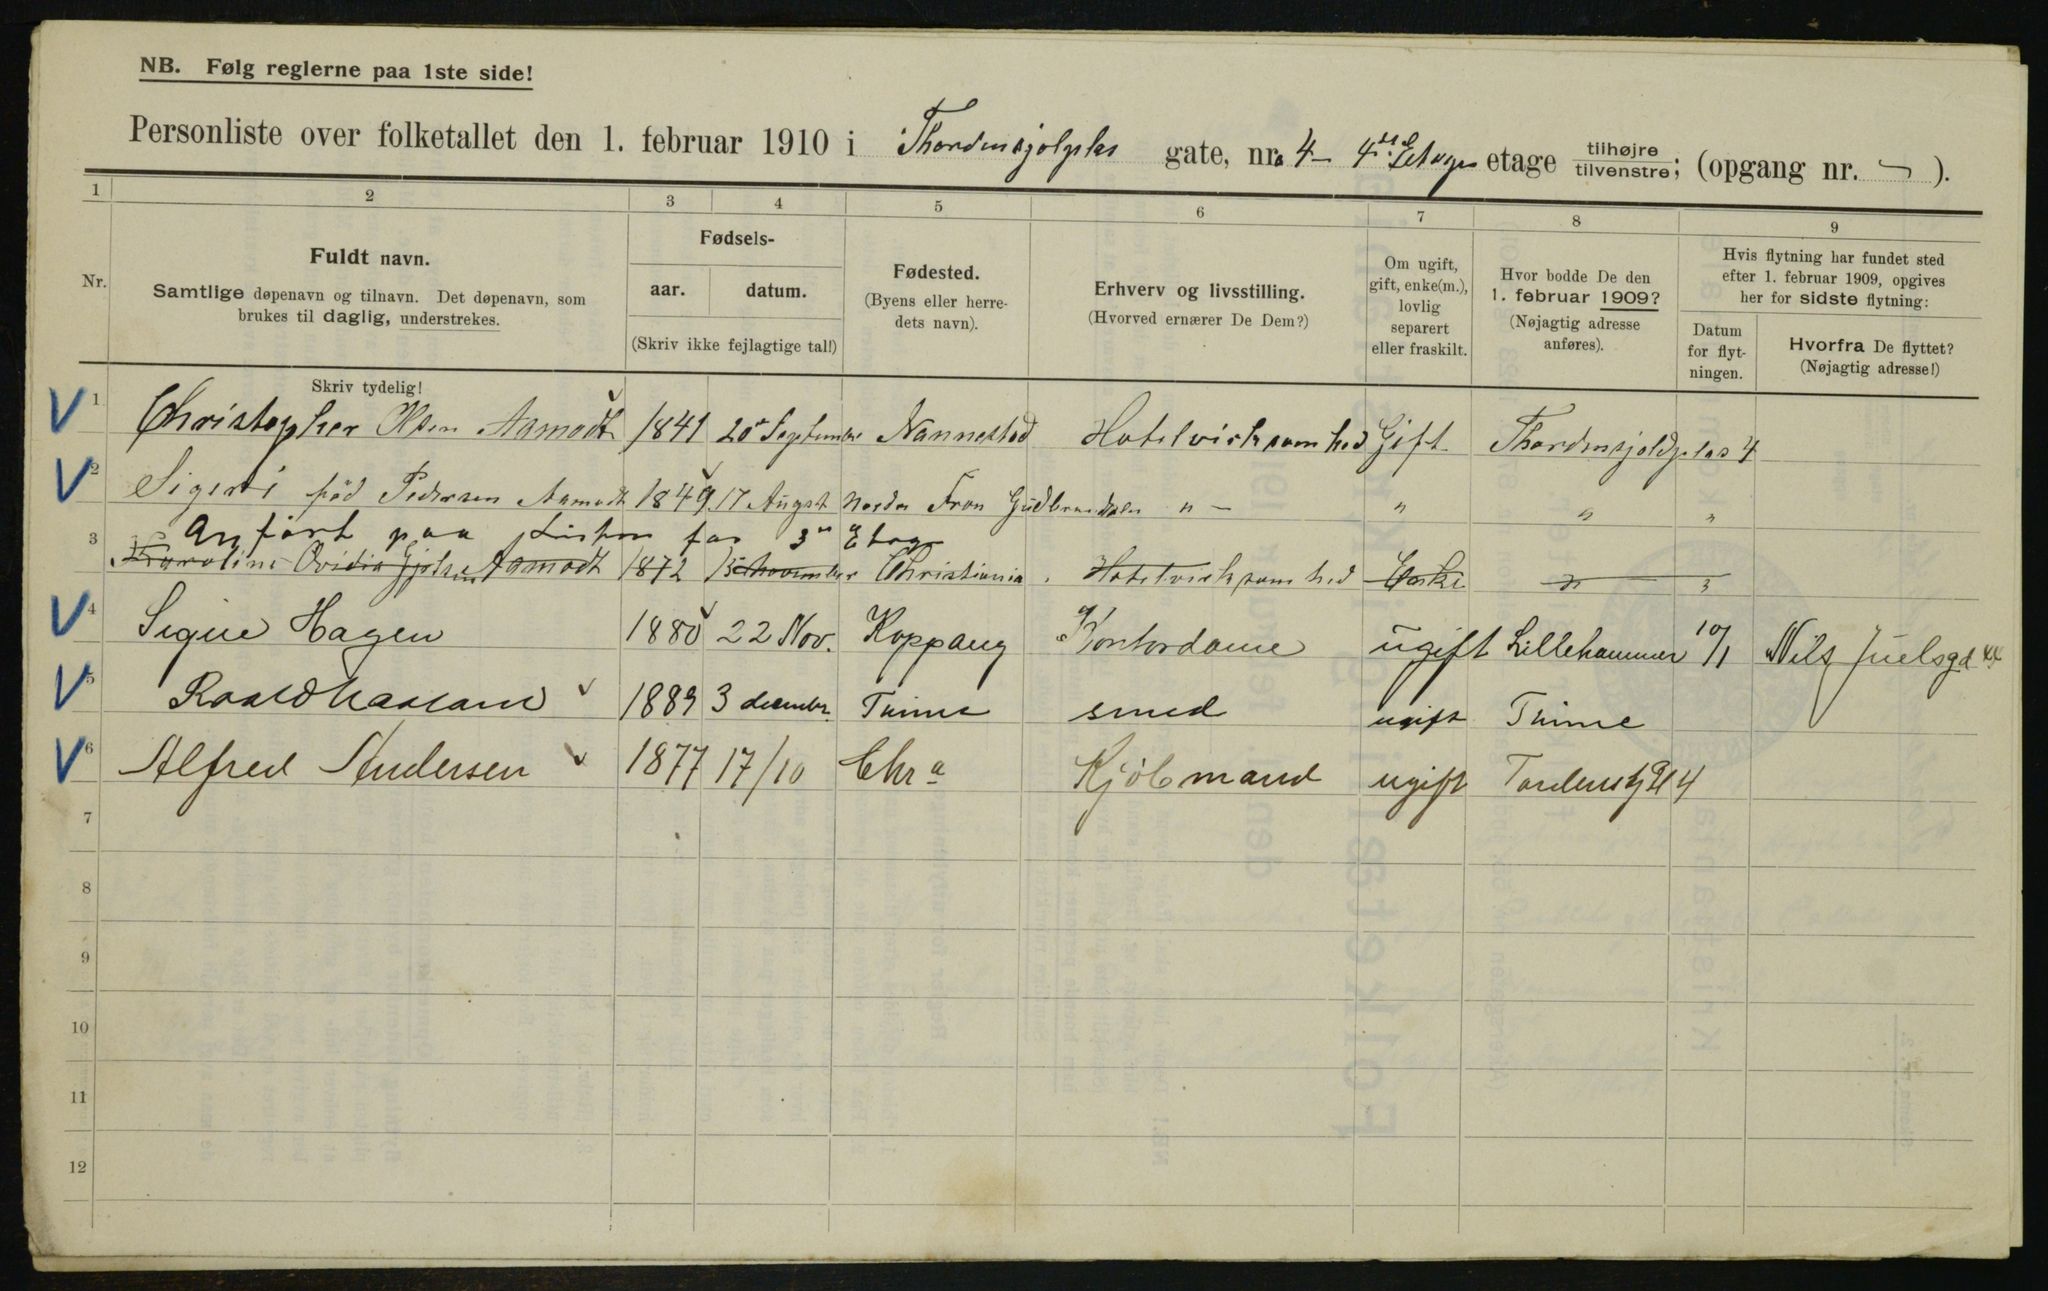 NB. Følg reglerne paa 1ste side!
Personliste over folketallet den 1. februar 1910 i Thordenskjolplas gate, nr. 4 - 4 Etages etage tilhøjre tilvenstre; (opgang nr. ).
1 2 3 4 5 6 7 8 9
Nr.
Fuldt navn.
Samtlige døpenavn og tilnavn. Det døpenavn, som
brukes til daglig, understrekes.
Skriv tydelig!
Fødsels-
aar. datum.
(Skriv ikke fejlagtige tal!)
Fødested.
(Byens eller herre-
dets navn).
Erhverv og livsstilling.
(Hvorved ernærer De Dem?)
Om ugift,
gift, enke(m.),
lovlig
separert
eller fraskilt.
Hvor bodde De den
1. februar 1909?
(Nøjagtig adresse
anføres).
Hvis flytning har fundet sted
efter 1. februar 1909, opgives
her for sidste flytning:
Datum
for flyt-
ningen.
Hvorfra De flyttet?
(Nøjagtig adresse!)
V 1 Christopher Olsen Aamodt 1841 20 September Nannestad Hotelvirksomhed Gift Thordenskjoldplas 4
V 2 Sigeri fød Pedersen Aamodt 1849 17 August Nordre Fron Gudbrandsdalen " - " " "
Anført paa Listen for 3 Etage
3 Karoline Ovidia Aamodt 1872 15 November Christiania Hotelvirksomhed Enke " "
V 4 Signe Hagen 1880 22 Nov. Koppang Kontordame ugift Lillehammer 10/1 Nils Juelsgd 44
V 5 1889 3 december Time smed ugift Time
V 6 Alfred Andersen 1877 17/10 Chra Kjøbmand ugift Tordenskj Pl 4
7
8
9
10
11
12